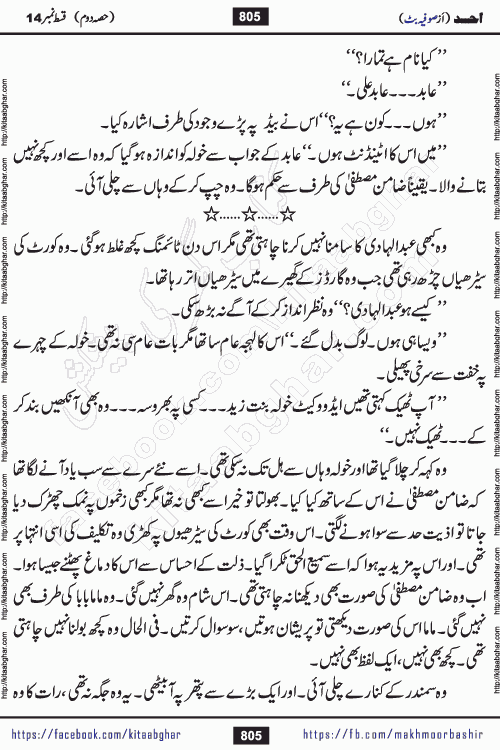 احمد (از صوفیہ بٹ) 805 (حصہ دوم) قسط نمبر 14
”کیا نام ہے تمارا؟“
”عابد۔۔۔عابد علی۔“
”ہوں۔۔۔کون ہے یہ؟“ اس نے بیڈ پہ پڑے وجود کی طرف اشارہ کیا۔
”میں اس کا اٹینڈنٹ ہوں۔“ عابد کے جواب سے خولہ کو اندازہ ہو گیا کہ وہ اسے اور کچھ نہیں
بتانے والا۔ یقیناً ضامن مصطفیٰ کی طرف سے حکم ہوگا۔ وہ چپ کر کے وہاں سے چلی آئی۔
☆......☆......☆
وہ کبھی عبدالہادی کا سامنا نہیں کرنا چاہتی تھی مگر اس دن ٹائمنگ کچھ غلط ہو گئی۔ وہ کورٹ کی
سیڑھیاں چڑھ رہی تھی جب وہ گارڈز کے گھیرے میں سیڑھیاں اتر رہا تھا۔
”کیسے ہو عبدالہادی؟“ وہ نظر انداز کر کے آگے نہ بڑھ سکی۔
”ویسا ہی ہوں۔ لوگ بدل گئے۔“ اس کا لہجہ عام سا تھا مگر بات عام سی نہ تھی۔ خولہ کے چہرے
پہ خفت سے سرخی پھیلی۔
”آپ ٹھیک کہتی تھیں ایڈووکیٹ خولہ بنت زید۔۔۔کسی پہ بھروسہ۔۔۔وہ بھی آنکھیں بند کر
کے۔۔۔ٹھیک نہیں۔“
وہ کہہ کر چلا گیا تھا اور خولہ وہاں سے ہل تک نہ سکی تھی۔ اسے نئے سرے سے سب یاد آنے لگا تھا
کہ ضامن مصطفیٰ نے اس کے ساتھ کیا کیا۔ بھولتا تو خیر اسے کبھی نہ تھا مگر کبھی زخموں پہ نمک چھڑک دیا
جاتا تو اذیت حد سے سوا ہونے لگتی۔ اس وقت بھی کورٹ کی سیڑھیوں پہ کھڑی وہ تکلیف کی اسی انتہا پر
تھی۔ اور اس پہ مزید یہ ہوا کہ اسے سمیع الحق ٹکرا گیا۔ ذلت کے احساس سے اس کا دماغ پھٹنے جیسا ہوا۔
اب وہ ضامن مصطفیٰ کی صورت بھی دیکھنا نہ چاہتی تھی۔ اس شام وہ گھر نہیں گئی۔ وہ ماما بابا کی طرف بھی
نہیں گئی۔ ماما اس کی صورت دیکھتی تو پریشان ہوتیں، سو سوال کرتیں۔ فی الحال وہ کچھ بولنا نہیں چاہتی
تھی۔ کچھ بھی نہیں، ایک لفظ بھی نہیں۔
وہ سمندر کے کنارے چلی آئی۔ اور ایک بڑے سے پتھر پہ آ بیٹھی۔ یہ وہ جگہ نہ تھی، رات کا وہ
https://facebook.com/kitaabghar 805 https://fb.com/makhmoorbashir
http://kitaabghar.com http://kitaabghar.com http://kitaabghar.com http://kitaabghar.com http://kitaabghar.com http://kitaabghar.com http://kitaabghar.com http://kitaabghar.com
http://kitaabghar.com http://kitaabghar.com http://kitaabghar.com http://kitaabghar.com http://kitaabghar.com http://kitaabghar.com http://kitaabghar.com http://kitaabghar.com
کتاب گھر کی پیشکش
http://kitaabghar.com
facebook.com/kitaabghar